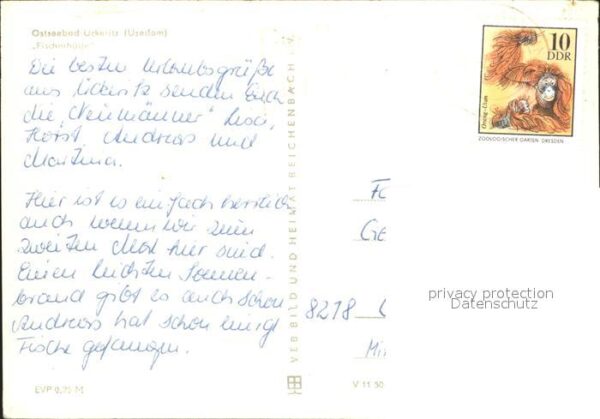 Ostseebad Ückeritz (Usedom)
„Fischerhütte"
Die besten Urlaubsgrüße
aus Ückeritz senden Euch
die „Neumänner"
Horst, Andreas und
Martina.
Hier ist es einfach herrlich
auch wenn wir zum
zweiten Mal hier sind.
Einen leichten Sonnen-
brand gibt es auch schon
Andreas hat schon einige
Fische gefangen.
EVP 0,20 M
VEB BILD UND HEIMAT REICHENBACH i. V.
V 11 50
10
DDR
Orang-Utan
ZOOLOGISCHER GARTEN DRESDEN
8278
privacy protection
Datenschutz